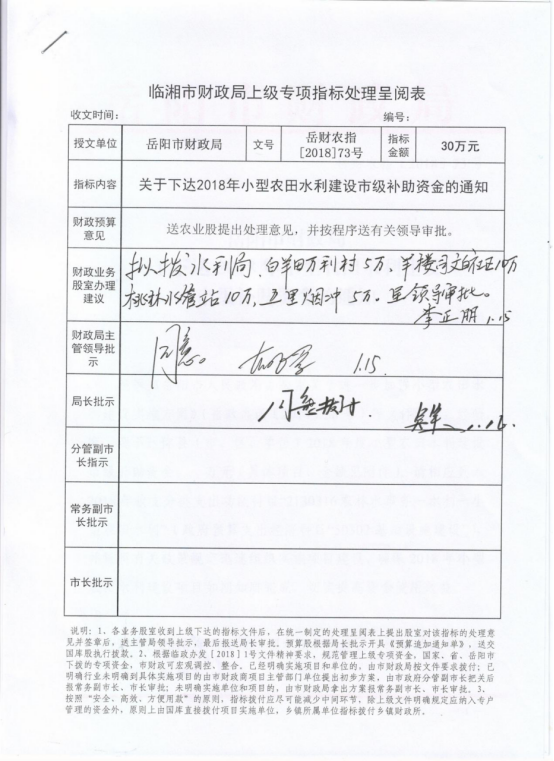 临湘市财政局上级专项指标处理呈阅表
收文时间： 编号：
授文单位 岳阳市财政局 文号 岳财农指[2018]73号 指标金额 30万元
指标内容 关于下达2018年小型农田水利建设市级补助资金的通知
财政预算意见 送农业股提出处理意见，并按程序送有关领导审批。
财政业务股室办理建议
拟拨水利局，白羊田万利村5万，羊楼司 10万
桃林水管站10万，五里烟冲5万。呈领导审批。
李正朋 1.15
财政局主管领导批示 同意。 1.15.
局长批示
分管副市长指示
常务副市长批示
市长批示
说明：1、各业务股室收到上级下达的指标文件后，在统一制定的处理呈阅表上提出股室对该指标的处理意
见并签章后，送主管局领导批示，最后报送局长审批。预算股根据局长批示开具《预算追加通知单》，送交
国库股执行拨款。2、根据临政办发[2018]1号文件精神要求，规范管理上级专项资金，国家、省、岳阳市
下拨的专项资金，市财政可宏观调控、整合。已经明确实施项目和单位的，由市财政局按文件要求拨付；已
明确行业未明确到具体实施项目的由市财政商项目主管部门单位提出初步方案，由市政府分管副市长把关后
报常务副市长、市长审批；未明确实施单位和项目的，由市财政局拿出方案报常务副市长、市长审批。3、
按照“安全、高效、方便用款”的原则，指标拨付应尽可能减少中间环节，除上级文件明确规定应纳入专户
管理的资金外，原则上由国库直接拨付项目实施单位，乡镇所属单位指标拨付乡镇财政所。